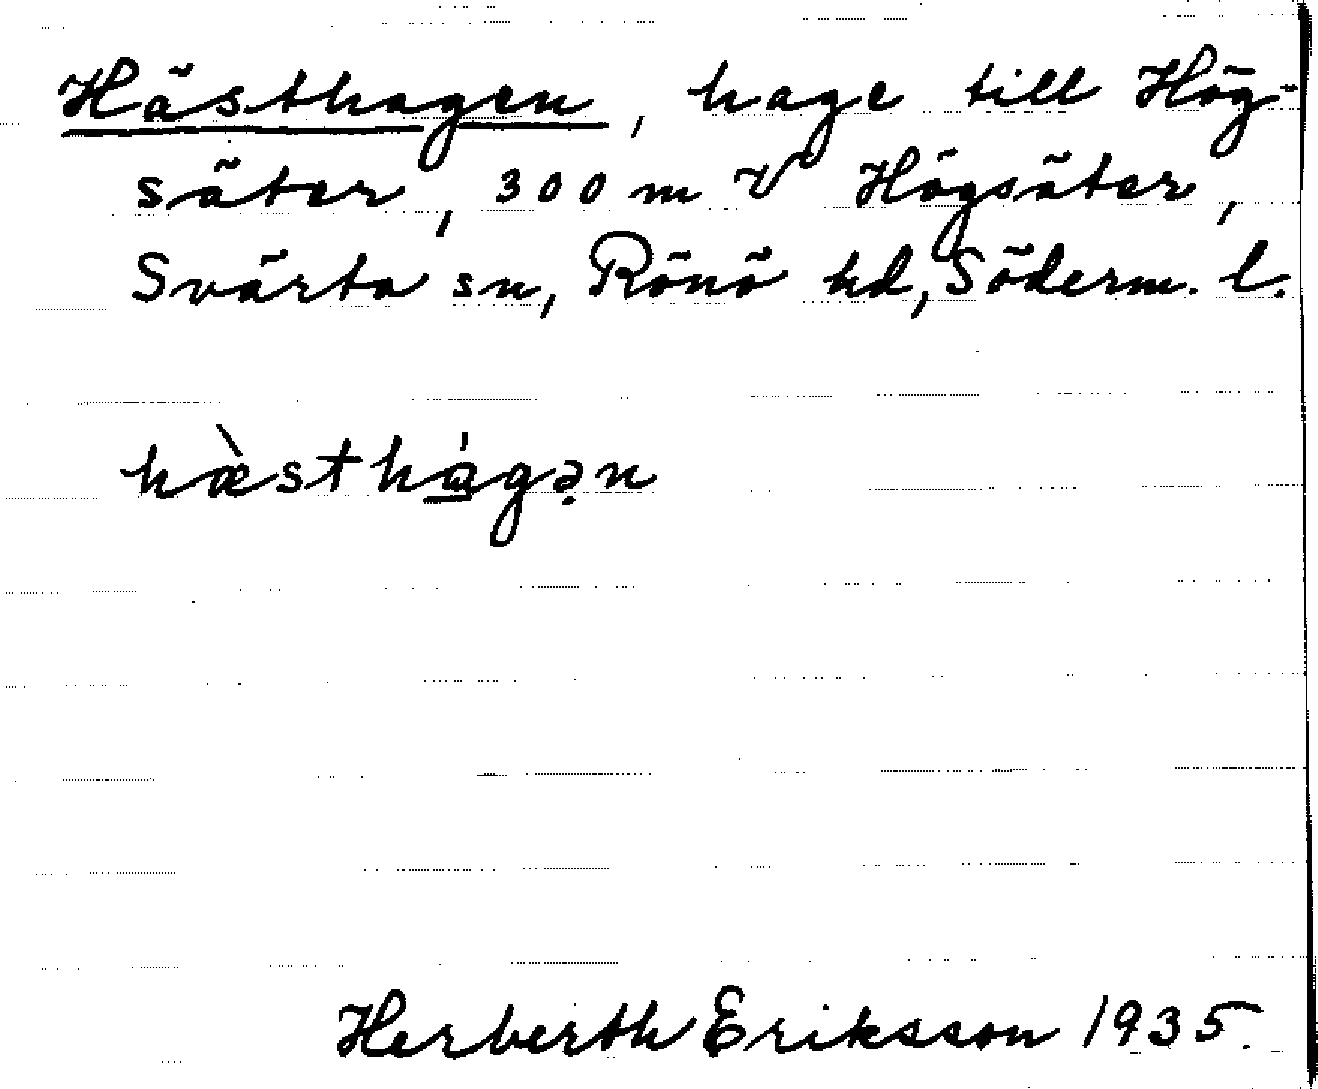 Hästhagen, hage till Hög-
säter, 300 m V Högsäter,
Svärta sn, Rönö hd, Söderm. l.
hæ̀sthá̱gə̣n
Herberth Eriksson 1935.